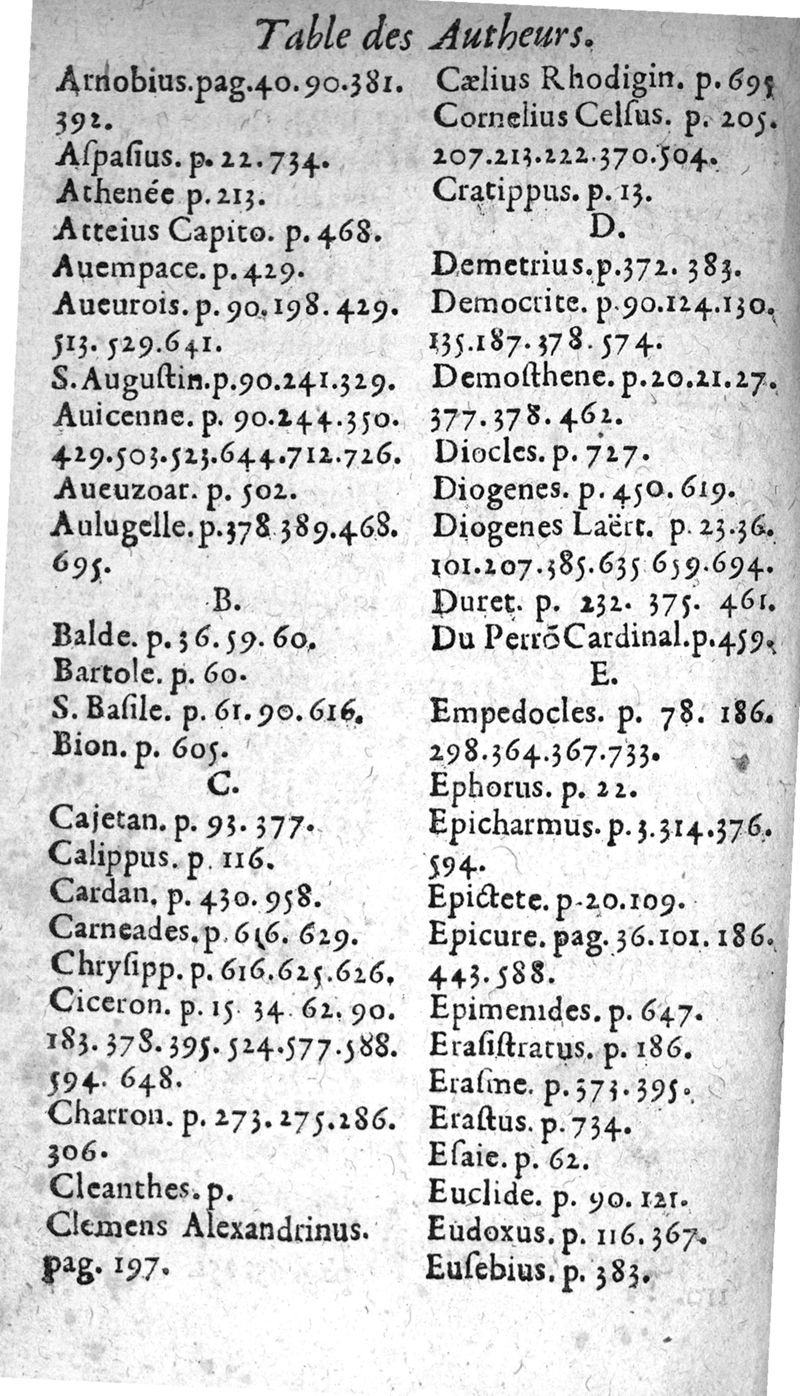 Table des Autheurs.
Arnobius.pag.40.90.381.
392.
Aſpaſius. p. 22.734.
Athenée p.213.
Atteius Capito. p. 468.
Auempace. p. 429.
Aueurois. p. 90.198.429.
513. 529.641.
S. Auguſtin.p.90.241.329.
Auicenne. p. 90.244.350.
429.503.523.644.712.726.
Aueuzoar. p. 502.
Aulugelle.p.378 389.468.
695.
B.
Balde. p. 36.59. 60.
Bartole. p. 60.
S. Baſile. p. 61.90.616.
Bion. p. 605.
C.
Cajetan. p. 93. 377.
Calippus. p. 116.
Cardan. p. 430. 958.
Carneades. p. 616. 629.
Chryſipp. p. 616.625.626.
Ciceron. p. 15 34. 62. 90.
183. 378. 395. 524.577.588.
594. 648.
Charron. p. 273.275.286.
306.
Cleanthes. p.
Clemens Alexandrinus.
pag. 197.
Cælius Rhodigin. p. 695
Cornelius Celſus. p. 205.
207.213.222.370.504.
Cratippus. p. 13.
D.
Demetrius.p.372. 383.
Democrite. p.90.124.130.
135.187.378.574.
Demoſthene. p.20.21.27.
377.378. 462.
Diocles. p. 727.
Diogenes. p. 450. 619.
Diogenes Laërt. p. 23.36.
101.207.385.635 659.694.
Duret. p. 232. 375. 461.
Du Perrõ Cardinal.p.459.
E.
Empedocles. p. 78. 186.
298.364.367.733.
Ephorus. p. 22.
Epicharmus. p.3.314.376.
594.
Epictete. p.20.109.
Epicure. pag. 36.101. 186.
443.588.
Epimenides. p. 647.
Eraſiſtratus. p. 186.
Eraſme. p. 373.395.
Eraſtus. p. 734.
Eſaie. p. 62.
Euclide. p. 90. 121.
Eudoxus. p. 116. 367.
Euſebius. p. 383.